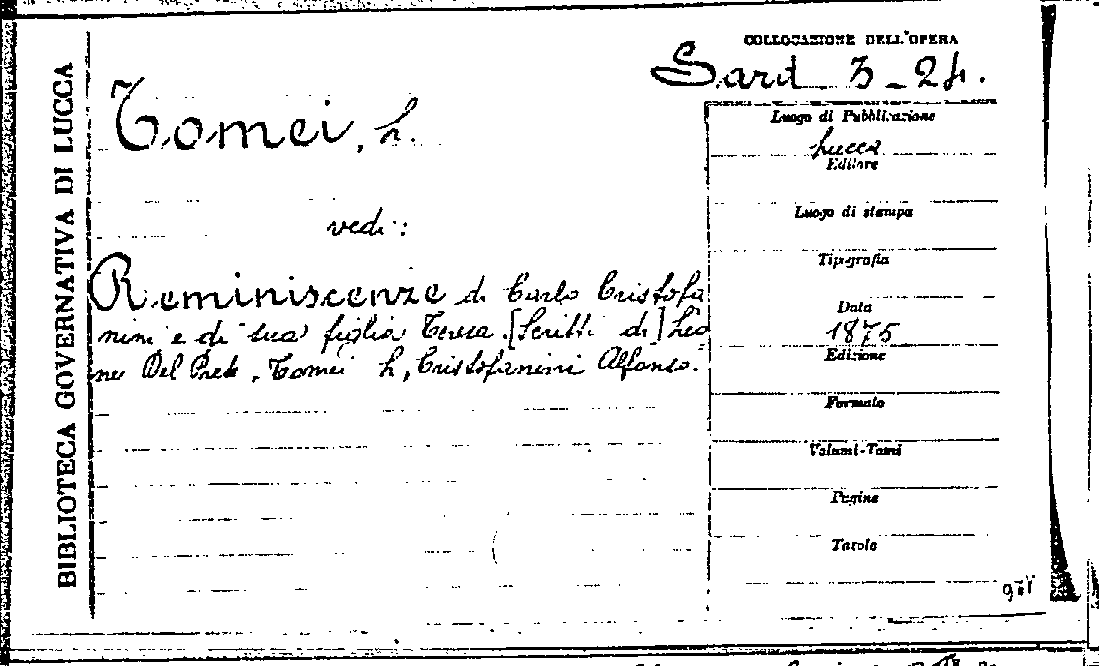 BIBLIOTECA GOVERNATIVA DI LUCCA
COLLOCAZIONE DELL'OPERA
Sard 3-24.
Tomei, L.
vedi:
Reminiscenze di Carlo Cristofa
nini e di sua figlia Teresa. [Scritti di] Leo
ne Del Prete, Tomei L, Cristofanini Alfonso.
Luogo di Pubblicazione
Lucca
Editore
Luogo di stampa
Tipografia
Data
1875
Edizione
Formato
Volumi-Tomi
Pagine
Tavole